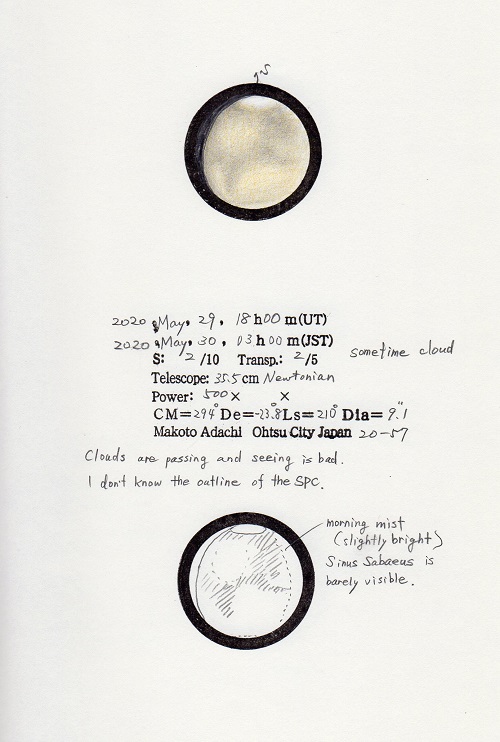 S
2020 May, 29, 18h00m(UT)
2020 May, 30, 03h00m(JST)
S: 2/10 Transp.: 2/5 sometime cloud
Telescope: 35.5cm Newtonian
Power: 500× ×
CM=294° De=-23.8° Ls=210° Dia=9.1"
Makoto Adachi Ohtsu City Japan 20-57
Clouds are passing and seeing is bad.
I don't know the outline of the SPC.
morning mist
(slightly bright)
Sinus Sabaeus is
barely visible.